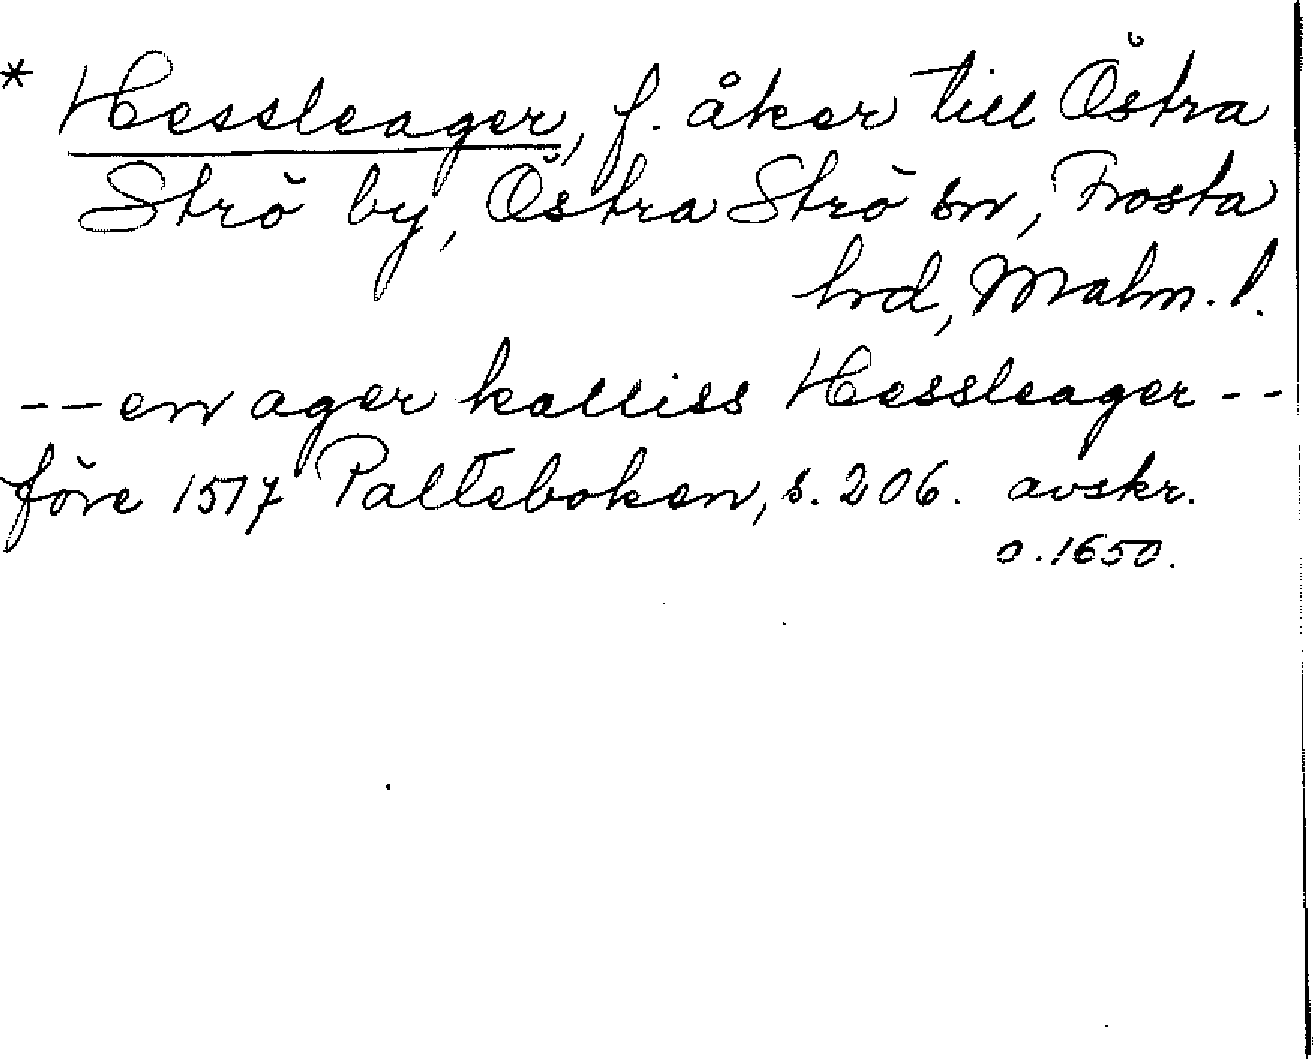 * Hessleager, f. åker till Östra
Strö by, Östra Strö sn, Frosta
hrd, Malm. l.
-- en ager kalliss Hessleager --
före 1517 Palteboken, s. 206. avskr.
o. 1650.